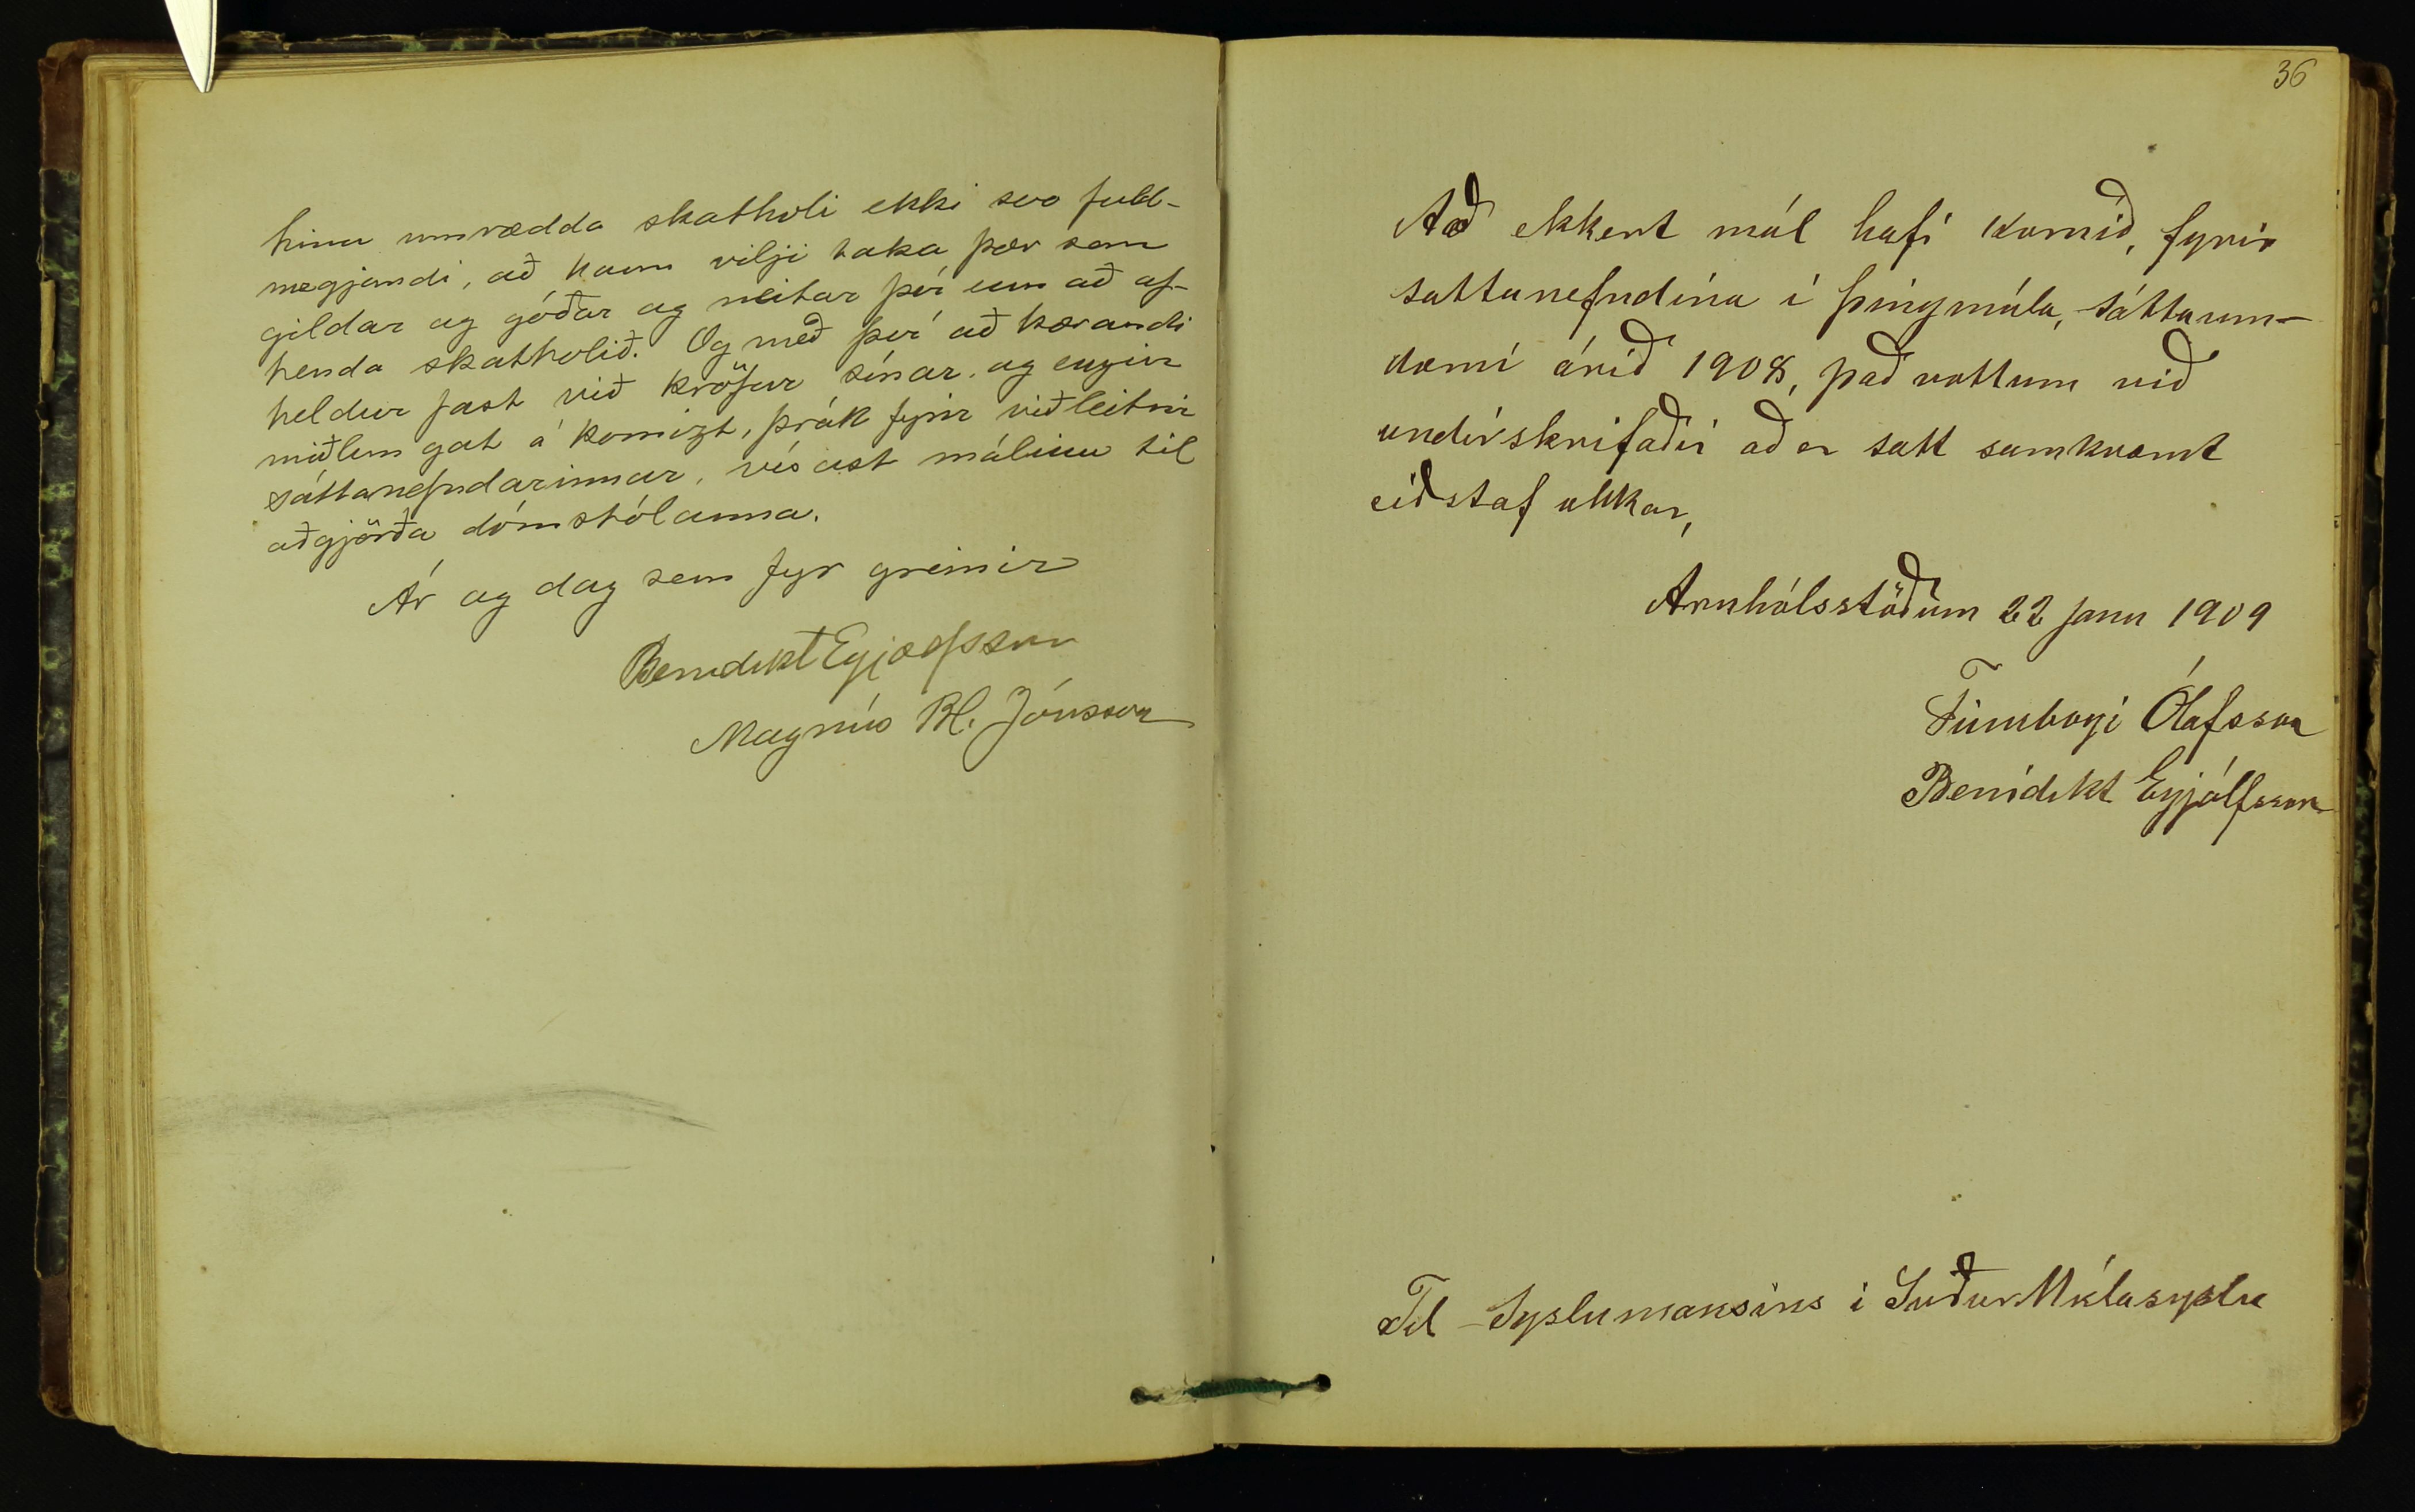 hinu umrædda skatholi ekki svo full-
nægjandi, að hann vilji taka þær sem
gildar og góðar og neitar því um að af-
henda skatholið. Og með því að kærandi
heldur fast við kröfur sínar, og engin
miðlun gat á komizt, þrátt fyrir viðleitni
sáttanefndarinnar, vísast málinu til
aðgjörða dómstólanna.
Ár og dag sem fyr greinir
Benedikt Eyjolfsson
Magnús Bl. Jónsson
36
Að ekkert mál hafi komið, fyrir
sattanefndina í þingmúla, sáttaum-
dæmi árið 1908, það vottum við
undirskrifaðir að er satt samkvæmt
eiðstaf okkar,
Arnhólsstöðum 22 janu 1909
Finnbogi Ólafsson
Benidikt Eyjólfsson
Til Syslumansins i Suður Múlasyslu